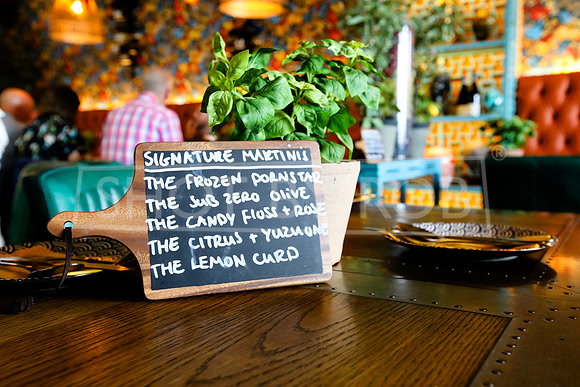 SIGNATURE MARTINIS
THE FROZEN PORNSTAR
THE SUB ZERO OLIVE
THE CANDY FLOSS + ROSE
THE CITRUS + YUZU ONE
THE LEMON CURD